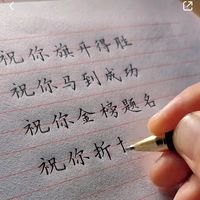 祝你旗开得胜
祝你马到成功
祝你金榜题名
祝你折